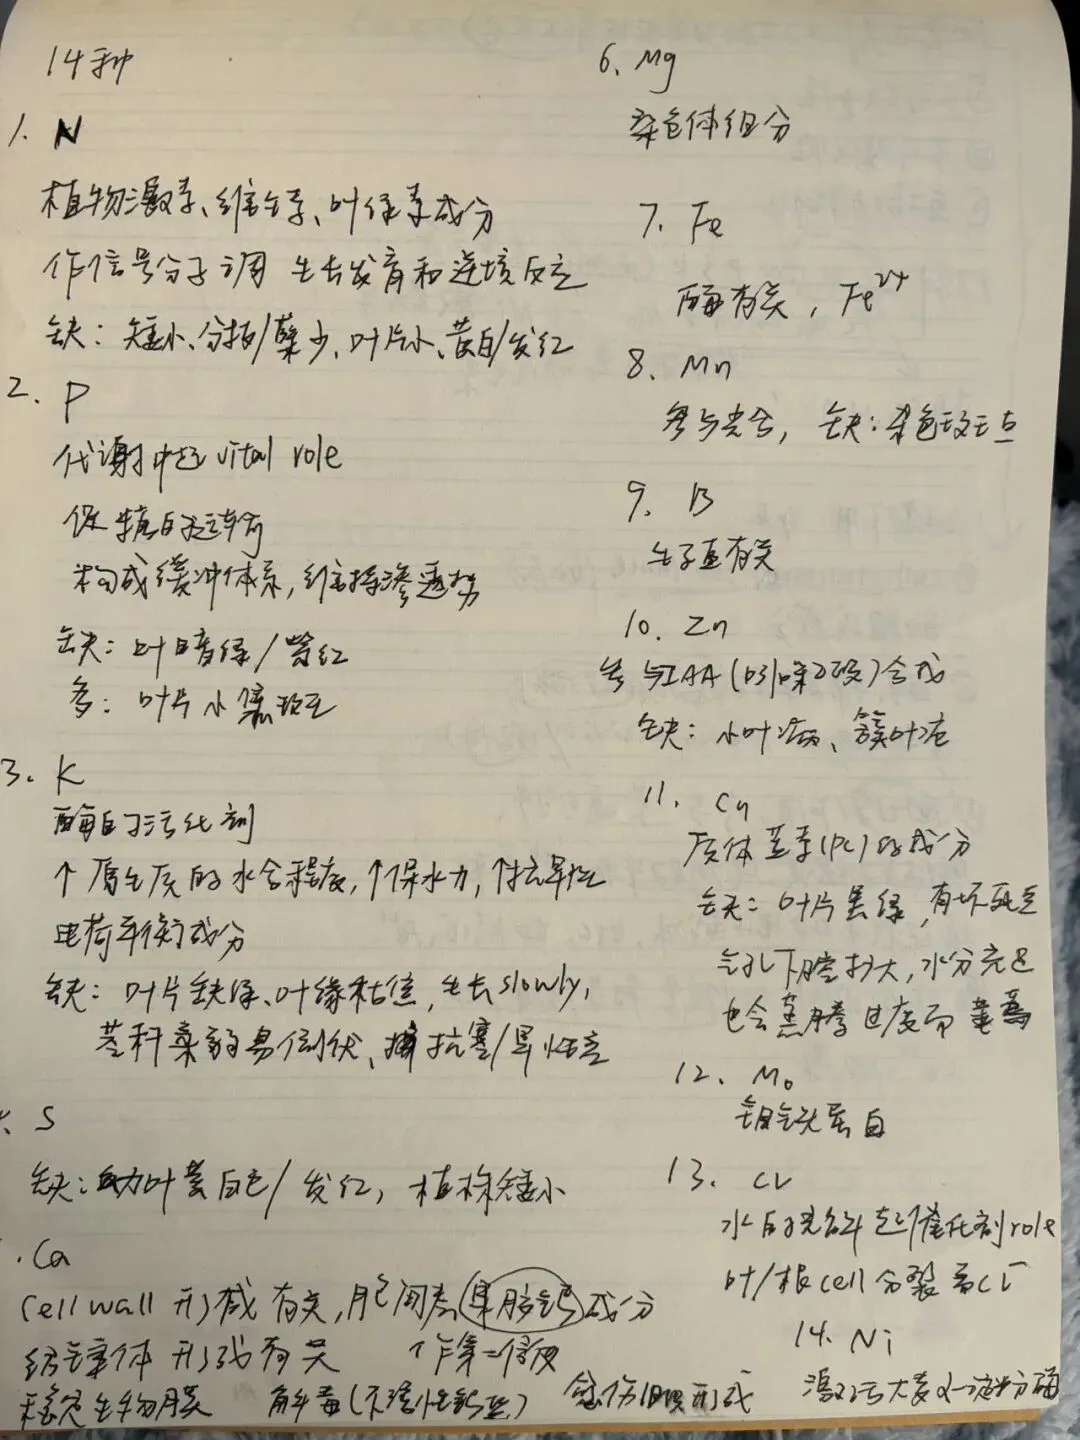 14种
1. N
植物激素、维生素、叶绿素成分
作信号分子调 生长发育和逆境反应
缺：矮小、分枝/蘖少、叶片小、黄白/发红
2. P
代谢中起 vital role
促糖的运输
构成缓冲体系，维持渗透势
缺：叶暗绿/紫红
多：叶片小焦斑
3. K
酶的活化剂
↑原生质的水合程度，↑保水力，↑抗旱性
电荷平衡成分
缺：叶片缺绿、叶缘枯焦，生长slowly，
茎秆柔弱易倒伏、抗寒/旱性差
S
缺：幼叶黄白色/发红，植株矮小
Ca
Cell wall 形成有关，胞间层 果胶钙 成分
纺锤体 形成有关 作第二信使
稳定生物膜 解毒（不溶性钙盐） 愈伤组织形成
6. Mg
染色体组分
7. Fe
酶有关，Fe²⁺
8. Mn
参与光合，缺：杂色斑点
9. B
生殖有关
10. Zn
参与IAA（吲哚乙酸）合成
缺：小叶病、簇叶症
11. Cu
质体蓝素（PC）的成分
缺：叶片黑绿，有坏死点
气孔下腔扩大，水分充足
也会蒸腾过度而萎蔫
12. Mo
钼铁蛋白
13. Cl
水的光解起催化剂role
叶/根cell分裂需Cl⁻
14. Ni
激活大麦α-淀粉酶